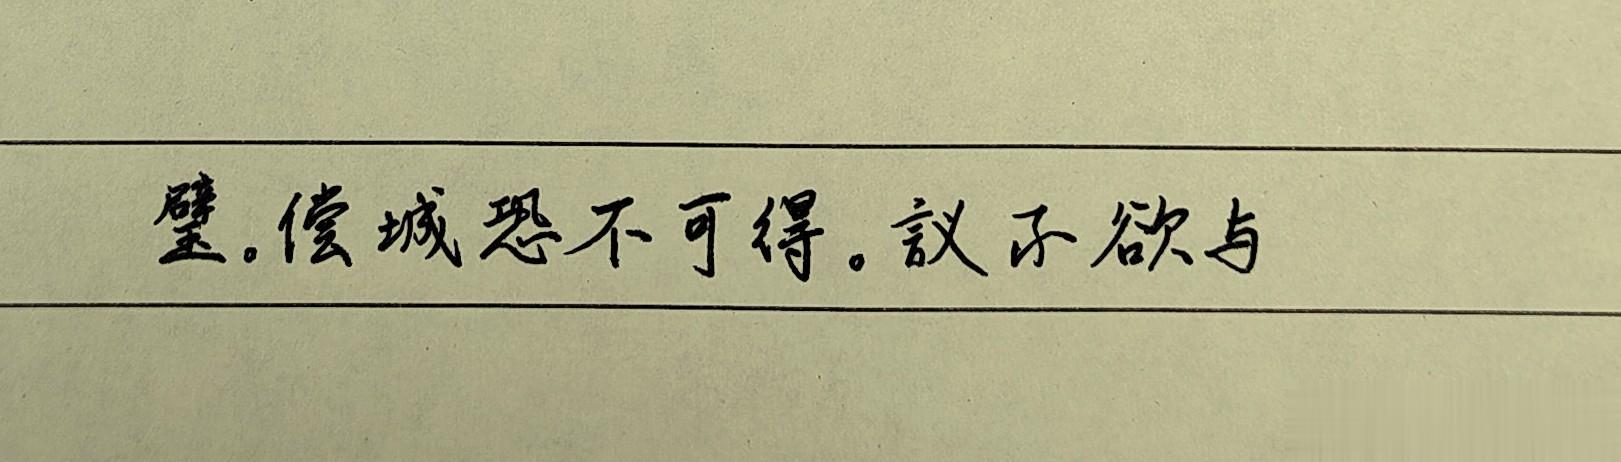 璧。偿城恐不可得。议不欲与